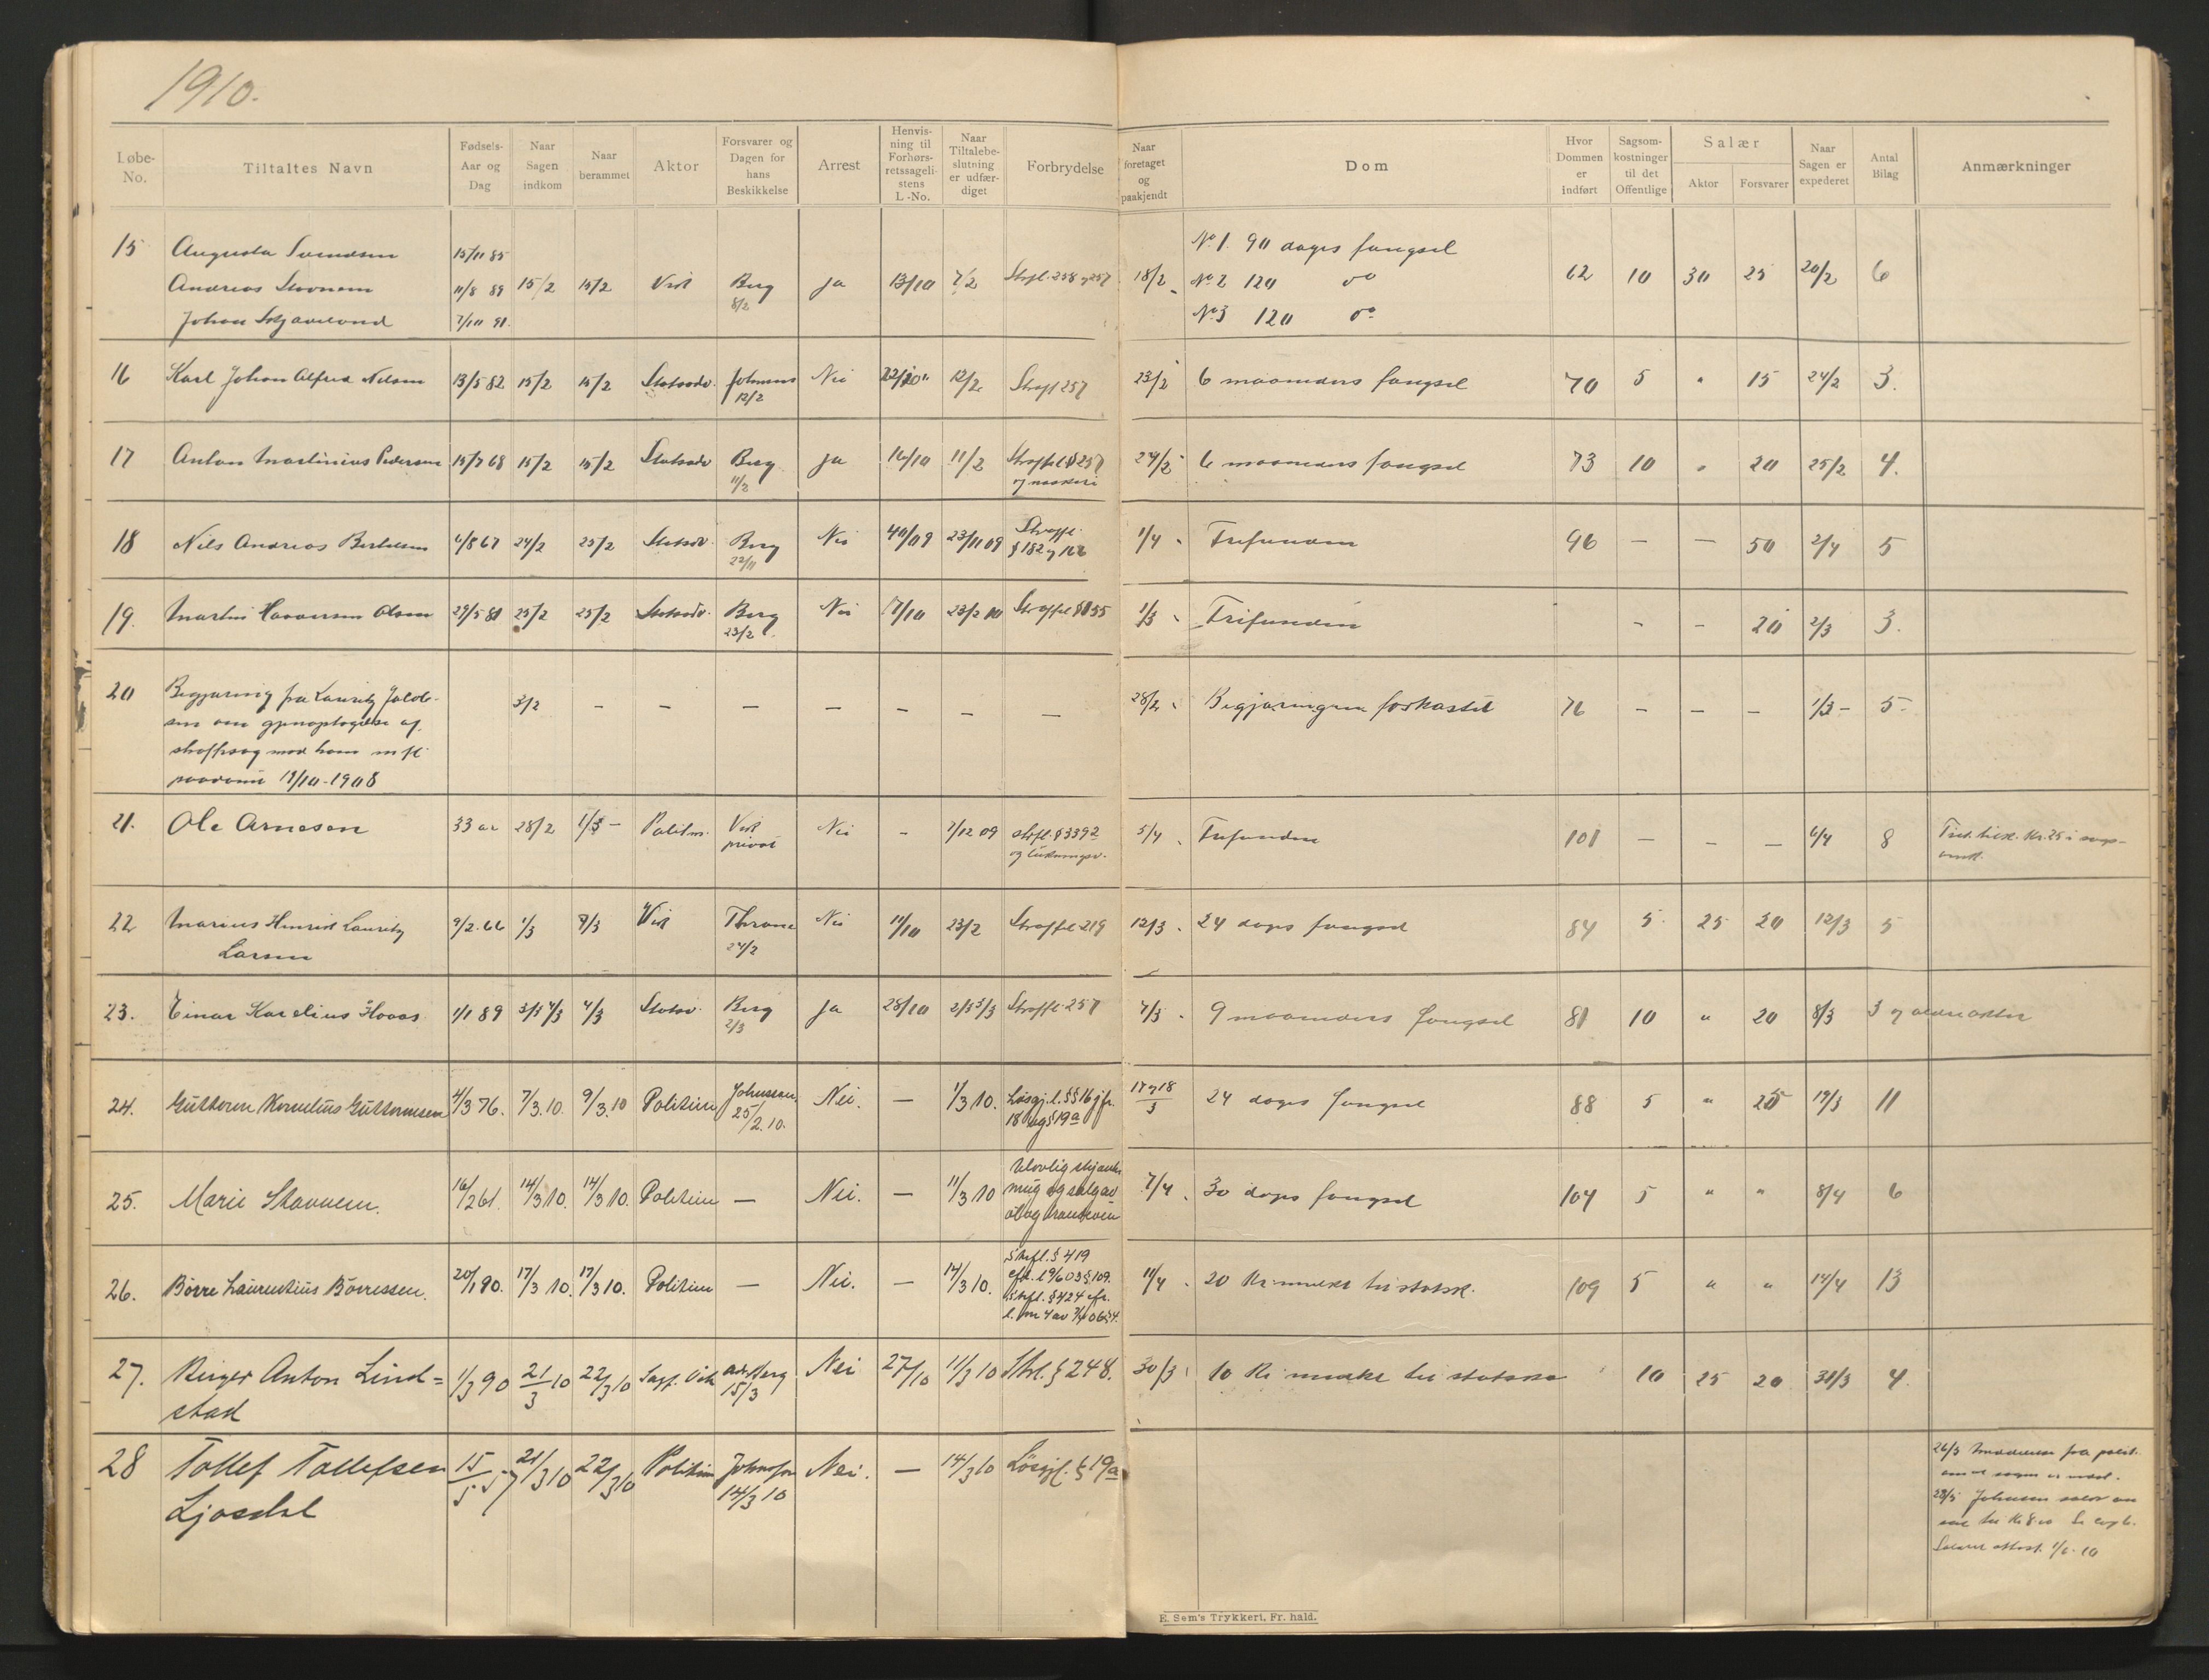 1910.
Løbe-No. Tiltaltes Navn Fødsels-Aar og Dag Naar Sagen indkom Naar berammet Aktor Forsvarer og Dagen for hans Beskikkelse Arrest Henvisning til Forhørsretssagelistens L.-No. Naar Tiltalebeslutning er udfærdiget Forbrydelse Naar foretaget og paakjendt Dom Hvor Dommen er indført Sagsomkostninger til det Offentlige Salær Aktor Forsvarer Naar Sagen er expederet Antal Bilag Anmærkninger
15 Augusta Svendsen 15/11 85 No 1. 90 dages fængsel
Andreas Stavnem 11/8 89 15/2 15/2 Vist Berg 8/2 Ja 13/10 7/2 Strfl. 258 og 257 18/2 No 2 120 do 62 10 30 25 20/2 6
Johan 7/10 91. No 3 120 do
16 Karl Johan Alfred Nilsen 13/5 82 15/2 15/2 Statsadv. Johnsen 12/2 Nei 22/10 12/2 Straffl 257 23/2 6 maaneders fængsel 70 5 " 15 24/2 3.
17 Anton Martinius Pedersen 15/7 68 15/2 15/2 Statsadv Berg 11/2 Ja 16/10 11/2 Straffel § 257 24/2 6 maaneders fængsel 73 10 " 20 25/2 4.
18 Nils Andreas Bertelsen 6/8 67 24/2 25/2 Statsadv. Berg 22/11 Nei 40/09 23/11 09 Straffl. § 182 og 166 1/4 Frifunden 96 — — 50 2/4 5
19. Martin Olsen 29/5 81 25/2 25/2 Statsadv. Berg 23/2 Nei 17/10 23/2 10 Straffel § 155 1/3 Frifunden - - 20 2/3 3.
20 Begjæring fra Lauritz Jakob-
sen om gjenoptagelse af 3/2 — — — — — — — 28/2 Begjæringen forkastet 76 — — — 1/3 - 5 -
straffesag mod ham m fl
19/10 - 1908
21. Ole Arnesen 33 aar 28/2 1/3 - Politm. Vist privat Nei - 7/12 09 strfl. § 339 2 5/4 Frifunden 101 — — — 6/4 8 Kr. 25 i
22 Marius Henrik Lauritz
Larsen 9/2. 66 1/3 7/3 Vist Thrane 24/2 Nei 11/10 23/2 Straffel 219 12/3 24 dages fængsel 84 5 25 20 12/3 5
23. Einar Karelius Hovas 1/1 89 3/3 4/3 4/3 Statsav. Berg 2/3 Ja 28/10 2/3 3/3 Straffl 257 7/3 9 maaneders fængsel 81 10 " 20 8/3 3 og ældre akter
24. Guttorm Kornelius Guttormsen 4/3 76. 7/3. 10. 9/3. 10 Politiet Johnssen 25/2. 10. Nei. — 1/3 10. Løsgj. l. §§ 16 jfr. 18 og § 19 a 17 og 18/3 24 dages fængsel 88 5 " 25 19/3 11
25. Marie Stavnem. 16/2 61. 14/3 10. 14/3 10. Politiet — Nei. — 11/3 10 Ulovlig skjænkning og salg av øl og brændevin 7/4 30 dages fængsel 104 5 " " 8/4 6
26. Børre Laurentius Børresen. 20/1 90. 17/3 10. 17/3 10. Politiet — Nei. — 14/3 10. Strfl. § 419 11/4 20 Kr. mulkt til statsk. 109 5 " " 14/4 13
27. Birger Anton Lind=
stad 1/3 90 21/3 10 22/3 10 Sagf. Vist adv. Berg 15/3 Nei 27/10 11/3 10 Strl. § 248. 30/3 10 Kr mulkt til statska 10 25 20 31/3 4
28 Tollef Tollefsen
Ljosdal 15/5 57 21/3 10 22/3 10 Politiet Johnsson 14/3 10 Nei. — 14/3 10 Løsgjl. § 19 a
26/3 fra polit.
28/5 Johnsen salær
Salæret attest. 1/6. 10
E. Sem's Trykkeri, Fr. hald.